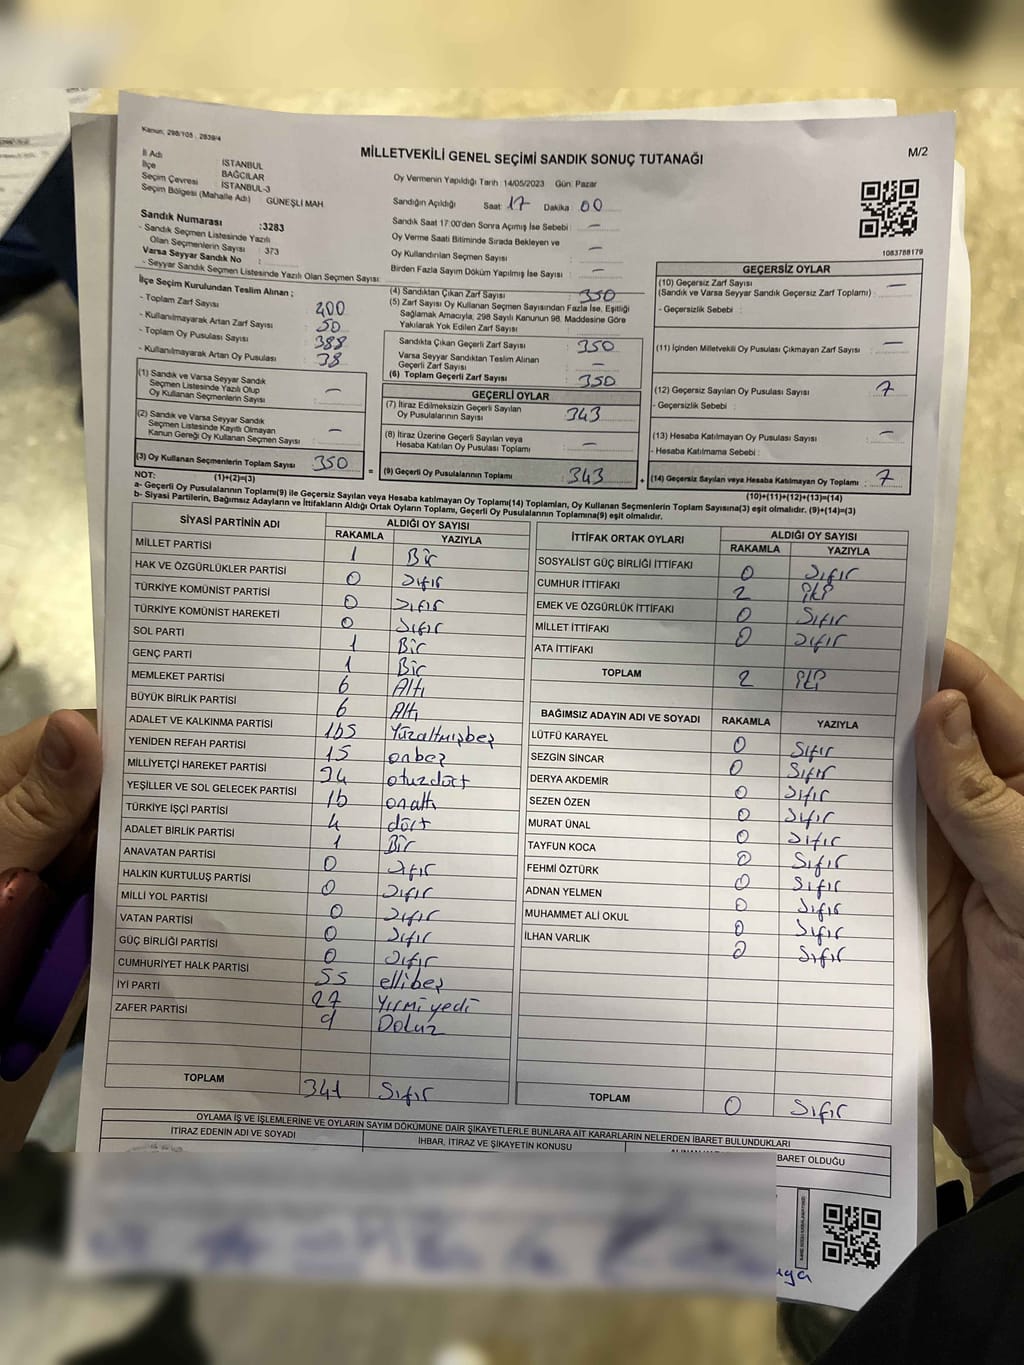 Kanun: 298/105 ; 2839/4
MİLLETVEKİLİ GENEL SEÇİMİ SANDIK SONUÇ TUTANAĞI
M/2
İl Adı : İSTANBUL
İlçe : BAĞCILAR
Seçim Çevresi : İSTANBUL-3
Seçim Bölgesi (Mahalle Adı) : GÜNEŞLİ MAH
Sandık Numarası :3283
- Sandık Seçmen Listesinde Yazılı
Olan Seçmenlerin Sayısı : 373
Varsa Seyyar Sandık No :
- Seyyar Sandık Seçmen Listesinde Yazılı Olan Seçmen Sayısı:
Oy Vermenin Yapıldığı Tarih 14/05/2023 Gün: Pazar
Sandığın Açıldığı Saat: 17 Dakika 00
Sandık Saat 17.00'den Sonra Açımış İse Sebebi : —
Oy Verme Saati Bitiminde Sırada Bekleyen ve
Oy Kullandırılan Seçmen Sayısı : —
Birden Fazla Sayım Döküm Yapılmış İse Sayısı : —
1083788179
İlçe Seçim Kurulundan Teslim Alınan ;
- Toplam Zarf Sayısı : 400
- Kullanılmayarak Artan Zarf Sayısı : 50
- Toplam Oy Pusulası Sayısı : 388
- Kullanılmayarak Artan Oy Pusulası : 38
(1) Sandık ve Varsa Seyyar Sandık
Seçmen Listesinde Yazılı Olup
Oy Kullanan Seçmenlerin Sayısı : —
(2) Sandık ve Varsa Seyyar Sandık
Seçmen Listesinde Kayıtlı Olmayan
Kanun Gereği Oy Kullanan Seçmen Sayısı : —
(3) Oy Kullanan Seçmenlerin Toplam Sayısı : 350
(1)+(2)=(3)
(4) Sandıktan Çıkan Zarf Sayısı : 350
(5) Zarf Sayısı Oy Kullanan Seçmen Sayısından Fazla İse, Eşitliği
Sağlamak Amacıyla; 298 Sayılı Kanunun 98. Maddesine Göre
Yakılarak Yok Edilen Zarf Sayısı :
Sandıkta Çıkan Geçerli Zarf Sayısı : 350
Varsa Seyyar Sandıktan Teslim Alınan
Geçerli Zarf Sayısı : —
(6) Toplam Geçerli Zarf Sayısı : 350
GEÇERLİ OYLAR
(7) İtiraz Edilmeksizin Geçerli Sayılan
Oy Pusulalarının Sayısı : 343
(8) İtiraz Üzerine Geçerli Sayılan veya
Hesaba Katılan Oy Pusulası Toplamı : —
= (9) Geçerli Oy Pusulalarının Toplamı : 343
GEÇERSİZ OYLAR
(10) Geçersiz Zarf Sayısı
(Sandık ve Varsa Seyyar Sandık Geçersiz Zarf Toplamı) : —
- Geçersizlik Sebebi :
(11) İçinden Milletvekili Oy Pusulası Çıkmayan Zarf Sayısı : —
(12) Geçersiz Sayılan Oy Pusulası Sayısı : 7
- Geçersizlik Sebebi :
(13) Hesaba Katılmayan Oy Pusulası Sayısı : —
- Hesaba Katılmama Sebebi :
+ (14) Geçersiz Sayılan veya Hesaba Katılmayan Oy Toplamı : 7
(10)+(11)+(12)+(13)=(14)
NOT:
a- Geçerli Oy Pusulalarının Toplamı(9) ile Geçersiz Sayılan veya Hesaba katılmayan Oy Toplamı(14) Toplamları, Oy Kullanan Seçmenlerin Toplam Sayısına(3) eşit olmalıdır. (9)+(14)=(3)
b- Siyasi Partilerin, Bağımsız Adayların ve İttifakların Aldığı Ortak Oyların Toplamı, Geçerli Oy Pusulalarının Toplamına(9) eşit olmalıdır.
SİYASİ PARTİNİN ADI ALDIĞI OY SAYISI
RAKAMLA YAZIYLA
MİLLET PARTİSİ 1 Bir
HAK VE ÖZGÜRLÜKLER PARTİSİ 0 Sıfır
TÜRKİYE KOMÜNİST PARTİSİ 0 Sıfır
TÜRKİYE KOMÜNİST HAREKETİ 0 Sıfır
SOL PARTİ 1 Bir
GENÇ PARTİ 1 Bir
MEMLEKET PARTİSİ 6 Altı
BÜYÜK BİRLİK PARTİSİ 6 Altı
ADALET VE KALKINMA PARTİSİ 165 Yüzaltmışbeş
YENİDEN REFAH PARTİSİ 15 onbeş
MİLLİYETÇİ HAREKET PARTİSİ 34 otuzdört
YEŞİLLER VE SOL GELECEK PARTİSİ 16 onaltı
TÜRKİYE İŞÇİ PARTİSİ 4 dört
ADALET BİRLİK PARTİSİ 1 Bir
ANAVATAN PARTİSİ 0 Sıfır
HALKIN KURTULUŞ PARTİSİ 0 Sıfır
MİLLİ YOL PARTİSİ 0 Sıfır
VATAN PARTİSİ 0 Sıfır
GÜÇ BİRLİĞİ PARTİSİ 0 Sıfır
CUMHURİYET HALK PARTİSİ 55 ellibeş
İYİ PARTİ 27 Yirmiyedi
ZAFER PARTİSİ 9 Dokuz
TOPLAM 341 Sıfır
İTTİFAK ORTAK OYLARI ALDIĞI OY SAYISI
RAKAMLA YAZIYLA
SOSYALİST GÜÇ BİRLİĞİ İTTİFAKI 0 Sıfır
CUMHUR İTTİFAKI 2 İki
EMEK VE ÖZGÜRLÜK İTTİFAKI 0 Sıfır
MİLLET İTTİFAKI 0 Sıfır
ATA İTTİFAKI
TOPLAM 2 İki
BAĞIMSIZ ADAYIN ADI VE SOYADI RAKAMLA YAZIYLA
LÜTFÜ KARAYEL 0 Sıfır
SEZGİN SİNCAR 0 Sıfır
DERYA AKDEMİR 0 Sıfır
SEZEN ÖZEN 0 Sıfır
MURAT ÜNAL 0 Sıfır
TAYFUN KOCA 0 Sıfır
FEHMİ ÖZTÜRK 0 Sıfır
ADNAN YELMEN 0 Sıfır
MUHAMMET ALİ OKUL 0 Sıfır
İLHAN VARLIK 0 Sıfır
TOPLAM 0 Sıfır
OYLAMA İŞ VE İŞLEMLERİNE VE OYLARIN SAYIM DÖKÜMÜNE DAİR ŞİKAYETLERLE BUNLARA AİT KARARLARIN NELERDEN İBARET BULUNDUKLARI
İTİRAZ EDENİN ADI VE SOYADI İHBAR, İTİRAZ VE ŞİKAYETİN KONUSU
BARET OLDUĞU